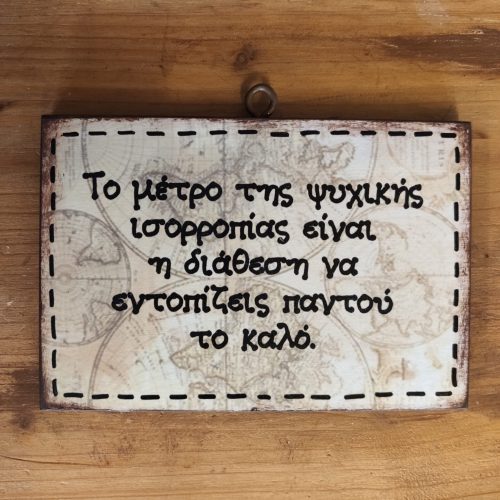 Το μέτρο της ψυχικής
ισορροπίας είναι
η διάθεση να
εντοπίζεις παντού
το καλό.